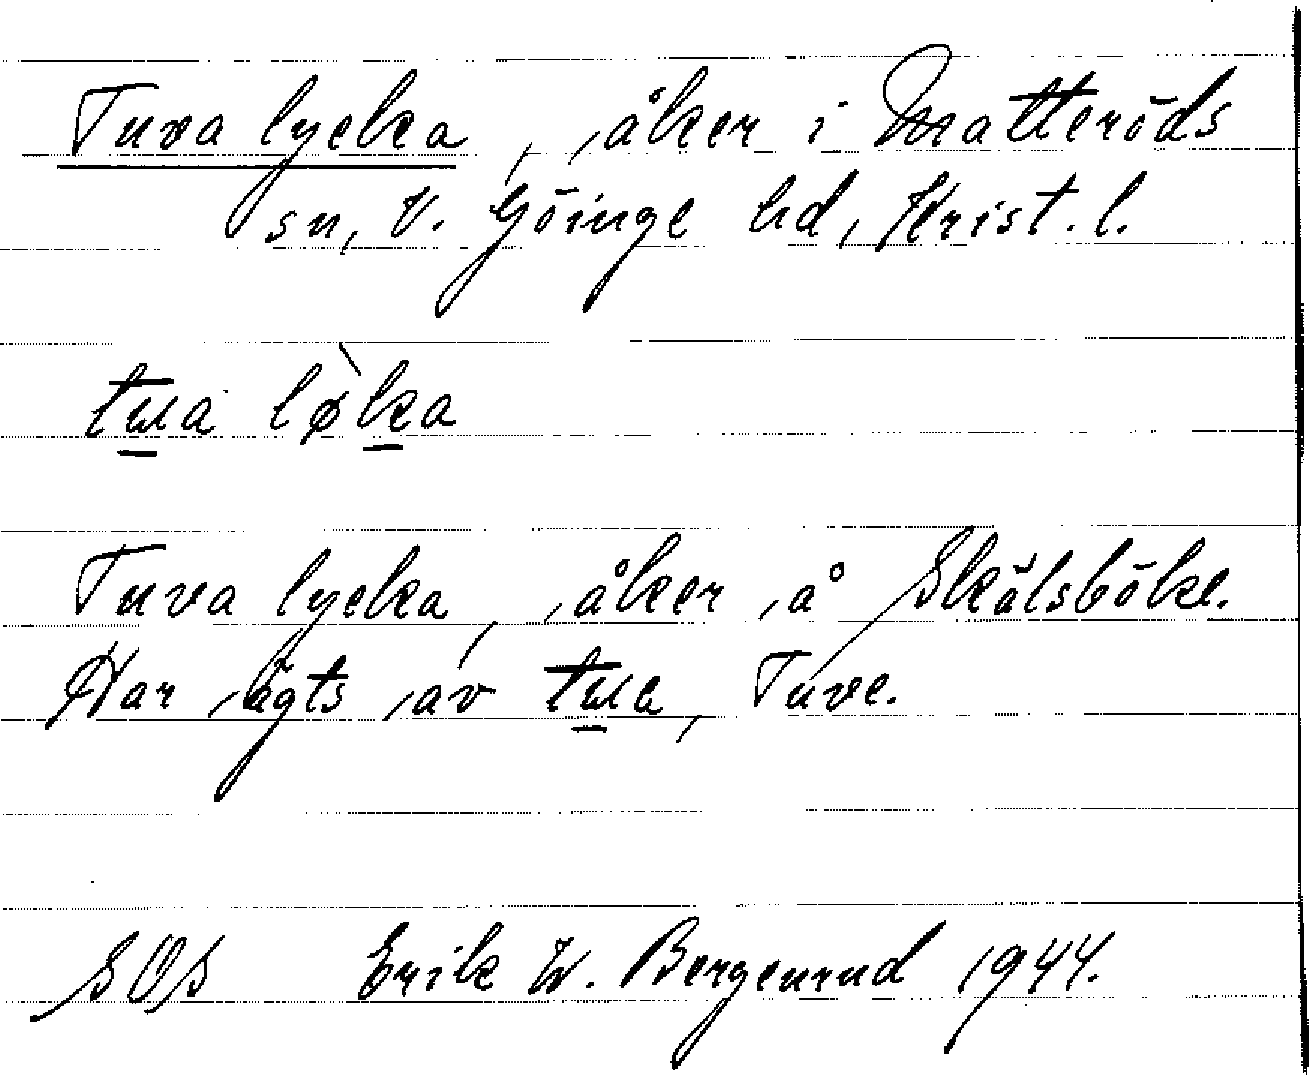 Tuva lycka, åker i Matteröds
sn, V. Göinge hd, Krist. l.
tɯa lø̀ka
Tuva lycka, åker å Skälsböke.
Har ägts av tɯa, Tuve.
SOS Erik W. Bergenrud 1944.